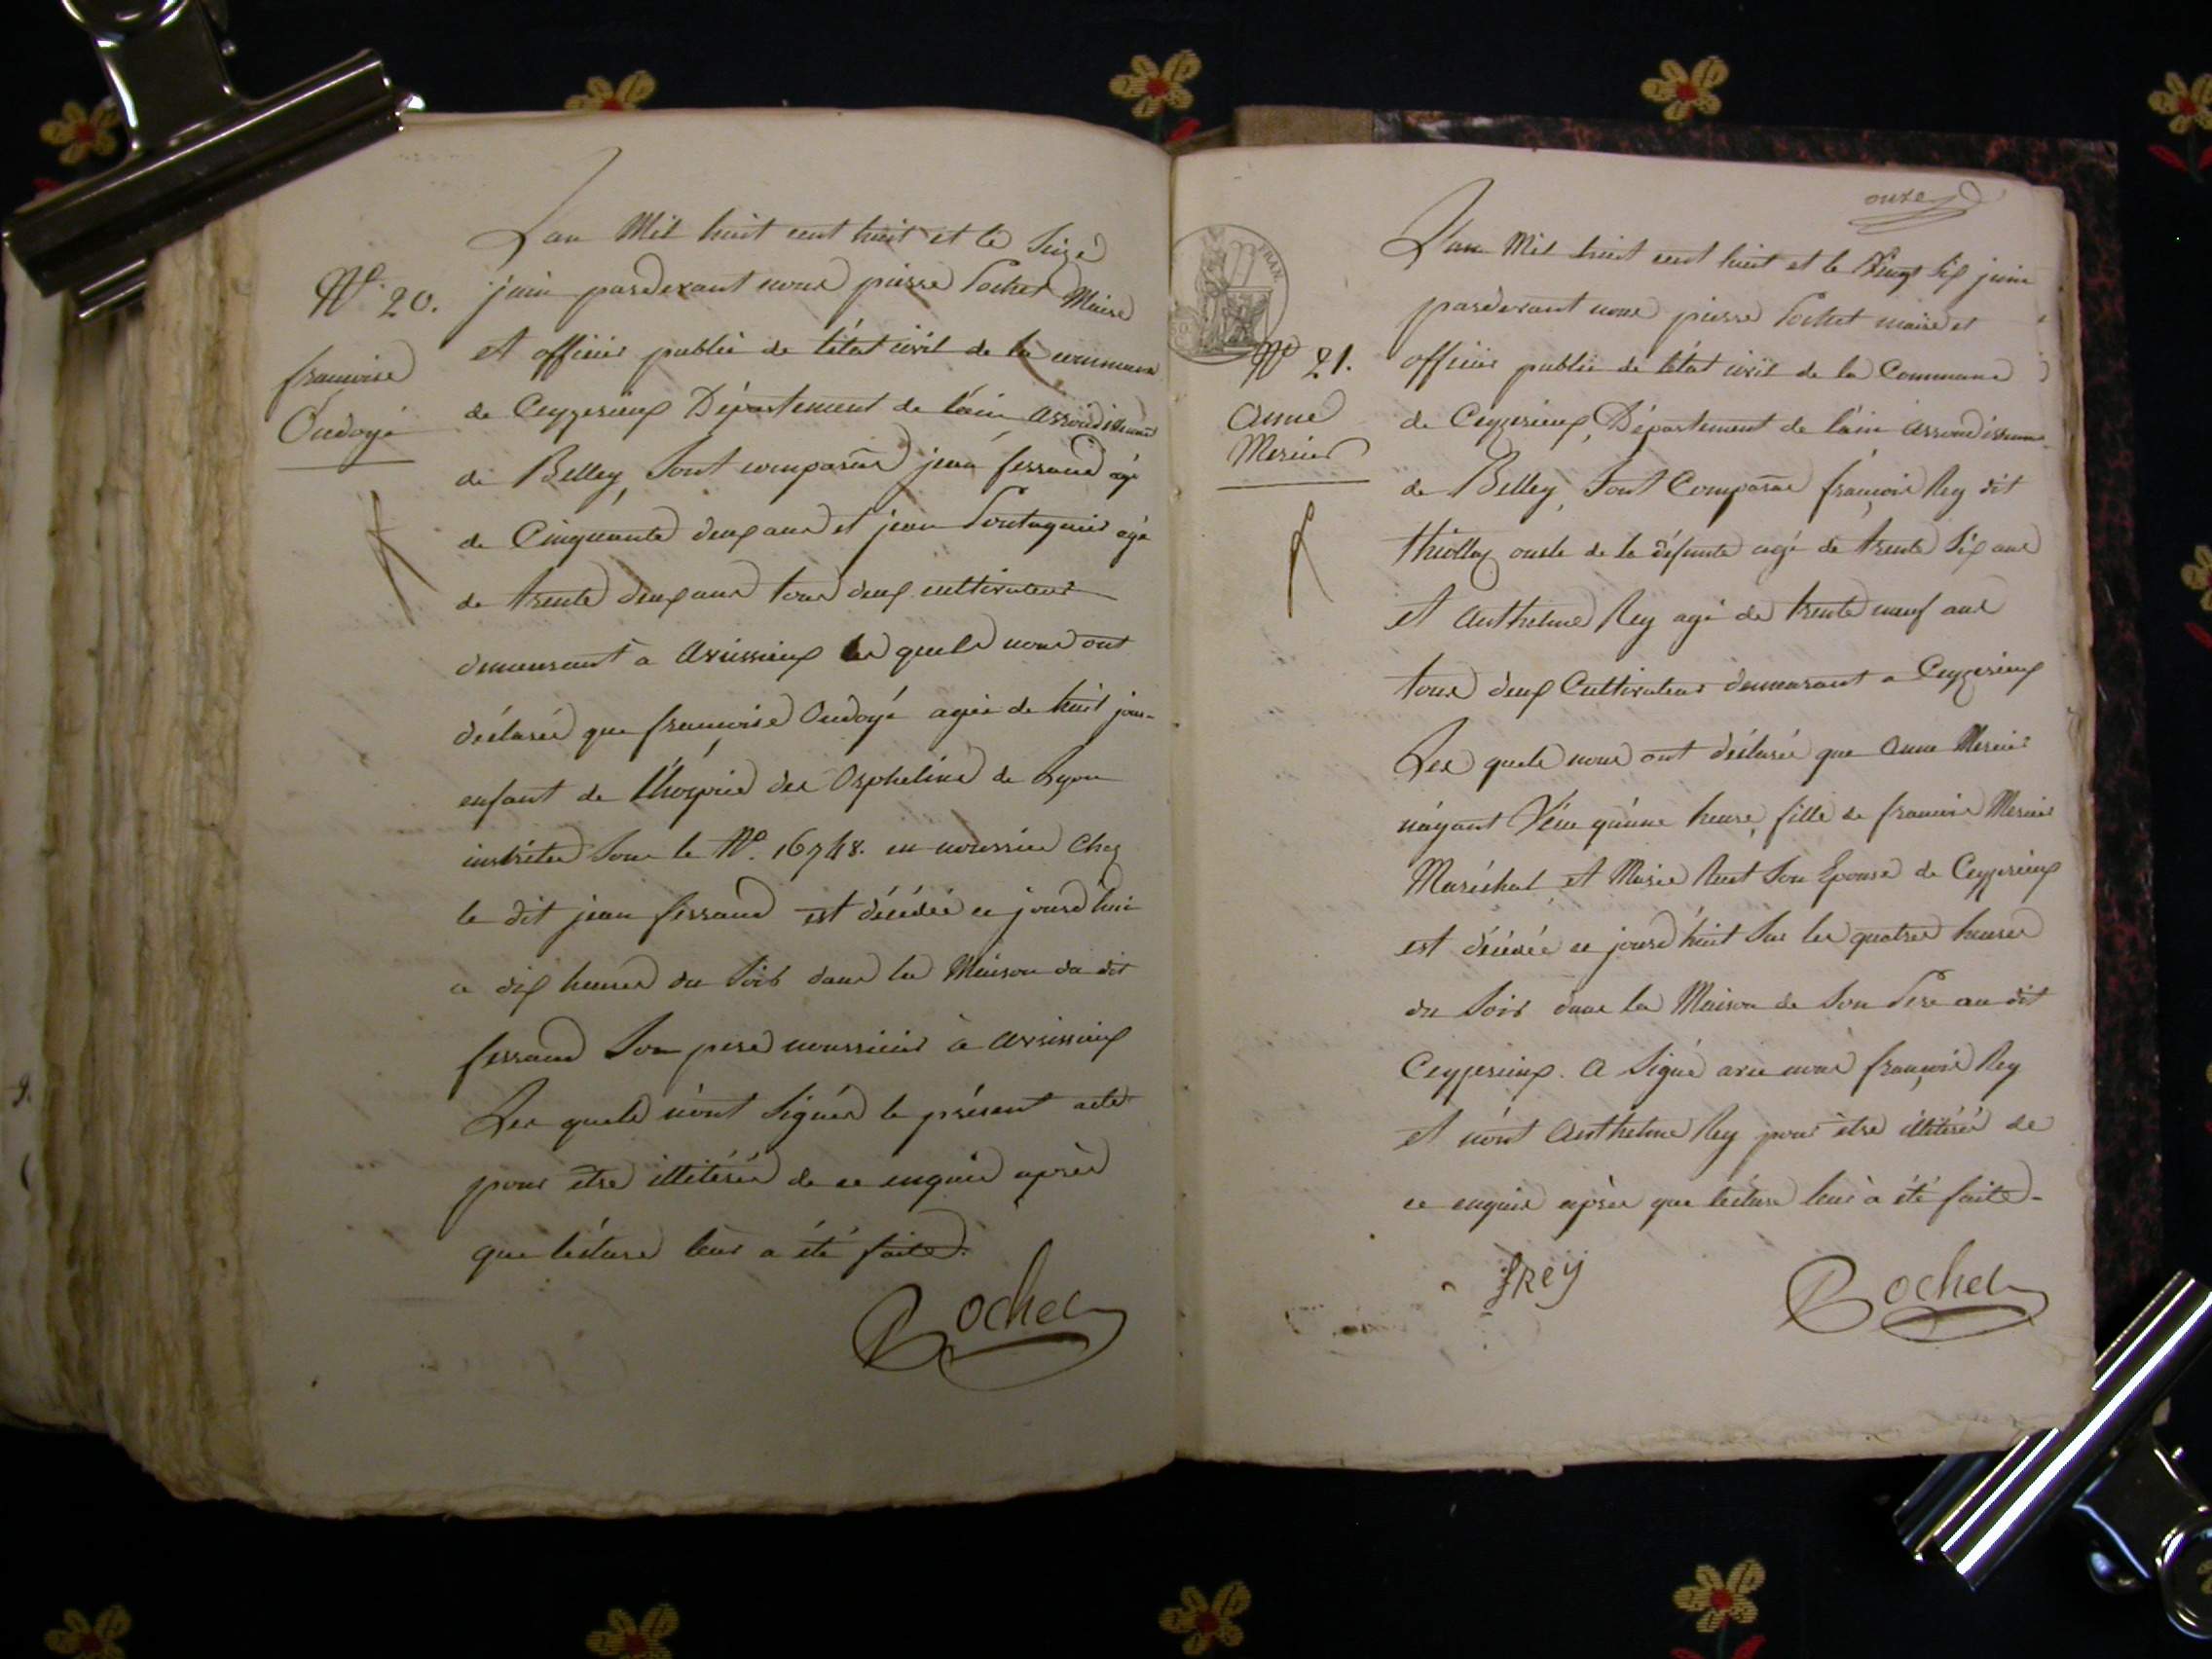 L'an Mil huit cent huit et le Seize
N.o 20. juin pardevant nous pierre Rochet Maire
et officier public de l'état civil de la commune
francoise
Oudoyé
de Ceyzerieux Département de l'ain arrondissement
de Belley, Sont comparus jean ferrand agé
de Cinquante deux ans et jean Pontagnier agé
de trente deux ans tous deux cultivateurs
demeurant à avrissieux les quels nous ont
déclaré que francoise Oudoyé agée de huit jours
enfant de l'hospice des Orphelins de Lyon
inscrite Sous le N.o 16748. en nourrice chez
le dit jean ferrand est décédée ce jourd'hui
a dix heures du Soir dans la Maison du dit
ferrand Son pere nourricier à avrissieux
Les quels n'ont Signés le présent acte
pour être illitérés de ce enquis après
que lecture leur a été faite.
Rochet
onze
FRAN.
50
L'an Mil huit cent huit et le Vingt Six juin
pardevant nous pierre Rochet maire et
N.o 21. officier public de l'état civil de la Commune
Anne
Mercier
de Ceyzerieux, Département de l'ain arrondissement
de Belley, Sont Comparus françois Rey dit
thiollaz oncle de la défunte agé de trente Six ans
et Anthelme Rey agé de trente neuf ans
tous deux Cultivateurs demeurant a Ceyzerieux
Les quels nous ont déclaré que Anne Mercier
n'ayant Vécu qu'une heure, fille de francois Mercier
Maréchal et Marie Son Epouse de Ceyzerieux
est décédée ce jourd'huit Sur les quatres heures
du Soir dans la Maison de Son Pere au dit
Ceyzerieux. A Signé avec nous françois Rey
et n'ont Anthelme Rey pour être illitéré de
ce enquis après que lecture leur à été faite.
fRey
Rochet